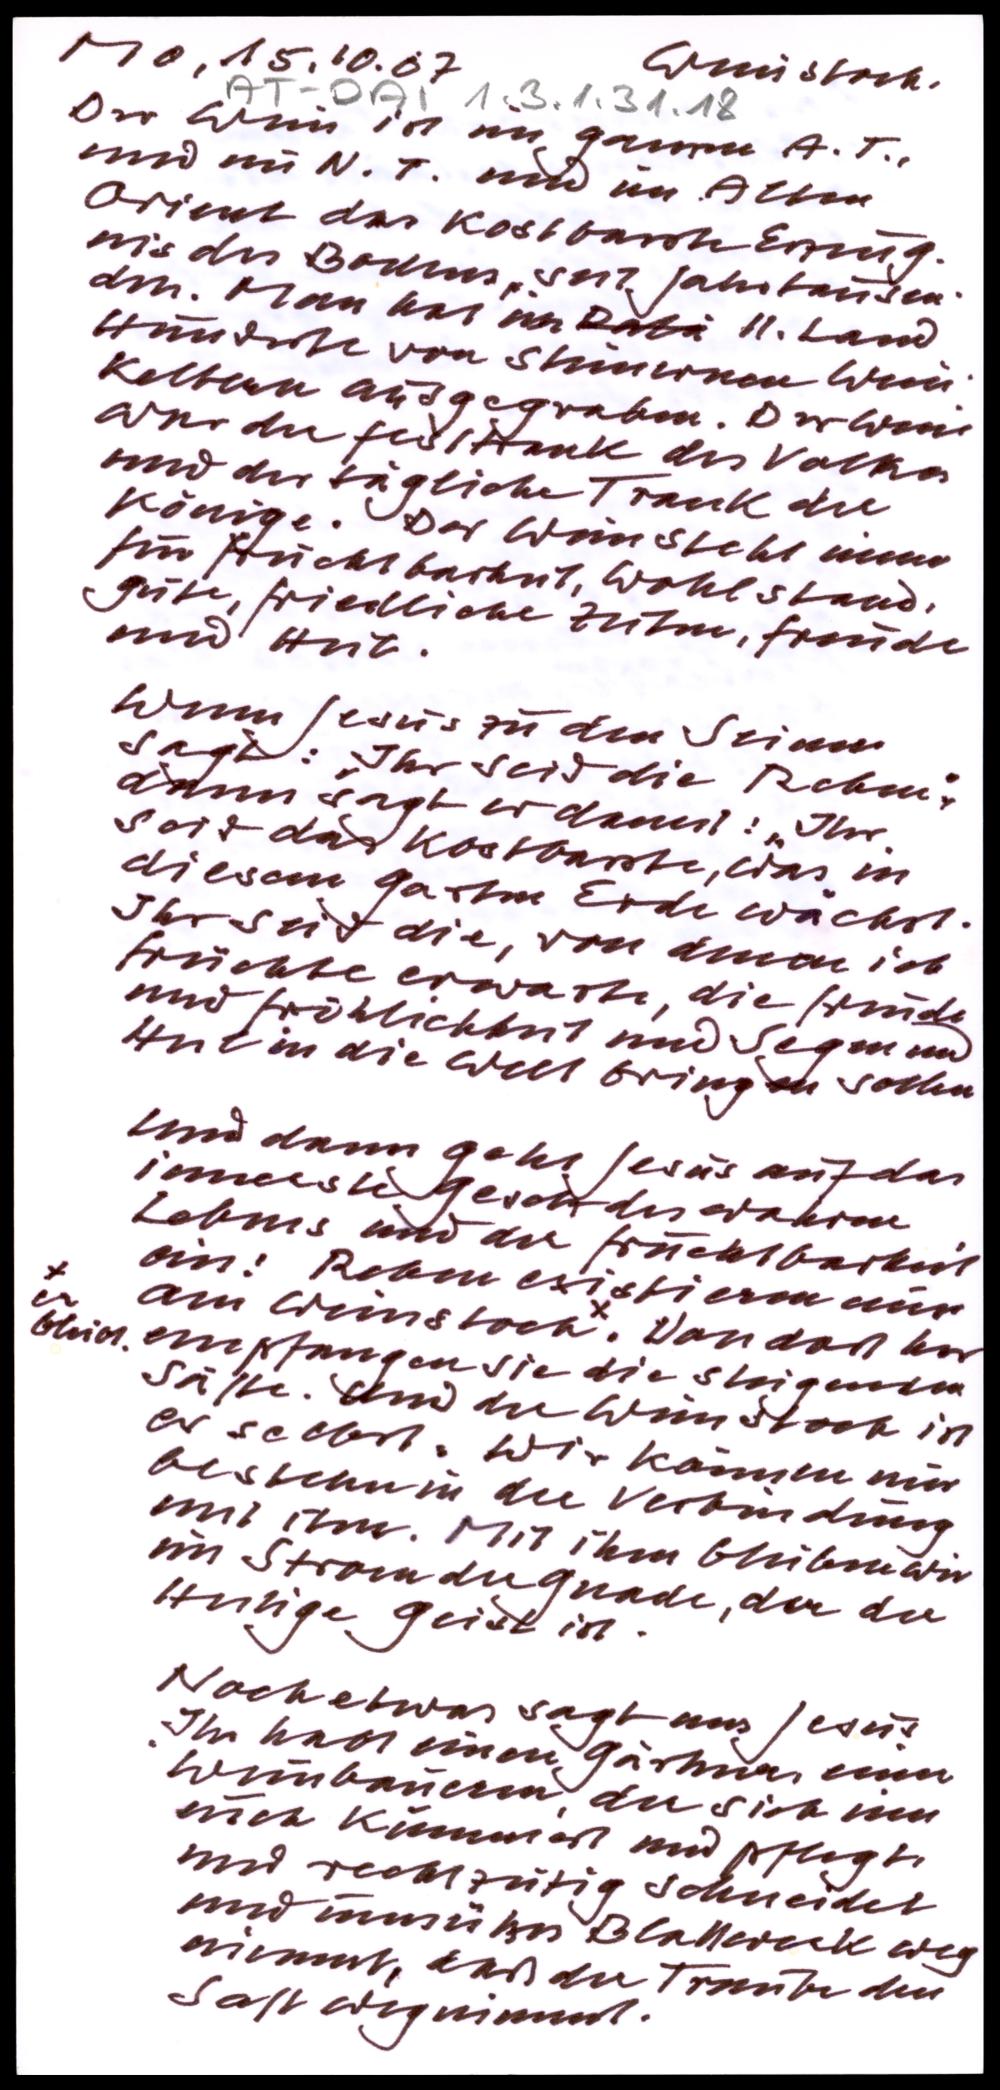 Mo, 15.10.07 Weinstock.
AT-DAI 1.3.1.31.18
Der Wein ist im ganzen A.T.,
und im N.T. und im Alten
Orient das kostbarste Erzeug-
nis des Bodens, seit Jahrtausen-
den. Man hat im Hl. Land
Hunderte von steinernen Wein-
Keltern ausgegraben. Der Wein
war der Festtrank des Volkes
und der tägliche Trank der
Könige. Der Wein steht immer
für Fruchtbarkeit, Wohlstand,
Güte, friedliche Zeiten, Freude
und Heil.
Wenn Jesus zu den Seinen
sagt: "Ihr seid die Reben",
dann sagt er damit: "Ihr
seid das Kostbarste, was in
diesem Garten Erde wächst.
Ihr seid die, von denen ich
Früchte erwarte, die Freude
und Fröhlichkeit und Segen und
Heil in die Welt bringen sollen
Und dann geht Jesus auf das
innerste Gesetz des wahren
Lebens und der Fruchtbarkeit
ein: Reben existieren nur
am Weinstock x. Von dort her
x
er
bleibt.
empfangen sie die steigenden
Säfte. Und der Weinstock ist
er selbst. Wir können nur
bestehn in der Verbindung
mit ihm. Mit ihm bleiben wir
im Strom der Gnade, der der
Heilige Geist ist.
Noch etwas sagt uns Jesus:
Ihr habt einen Gärtner, einen
Weinbauern, der sich um
euch kümmert und pflegt,
und rechtzeitig schneidet
und unnützes Blattwerk weg
nimmt, das der Traube den
Saft wegnimmt.